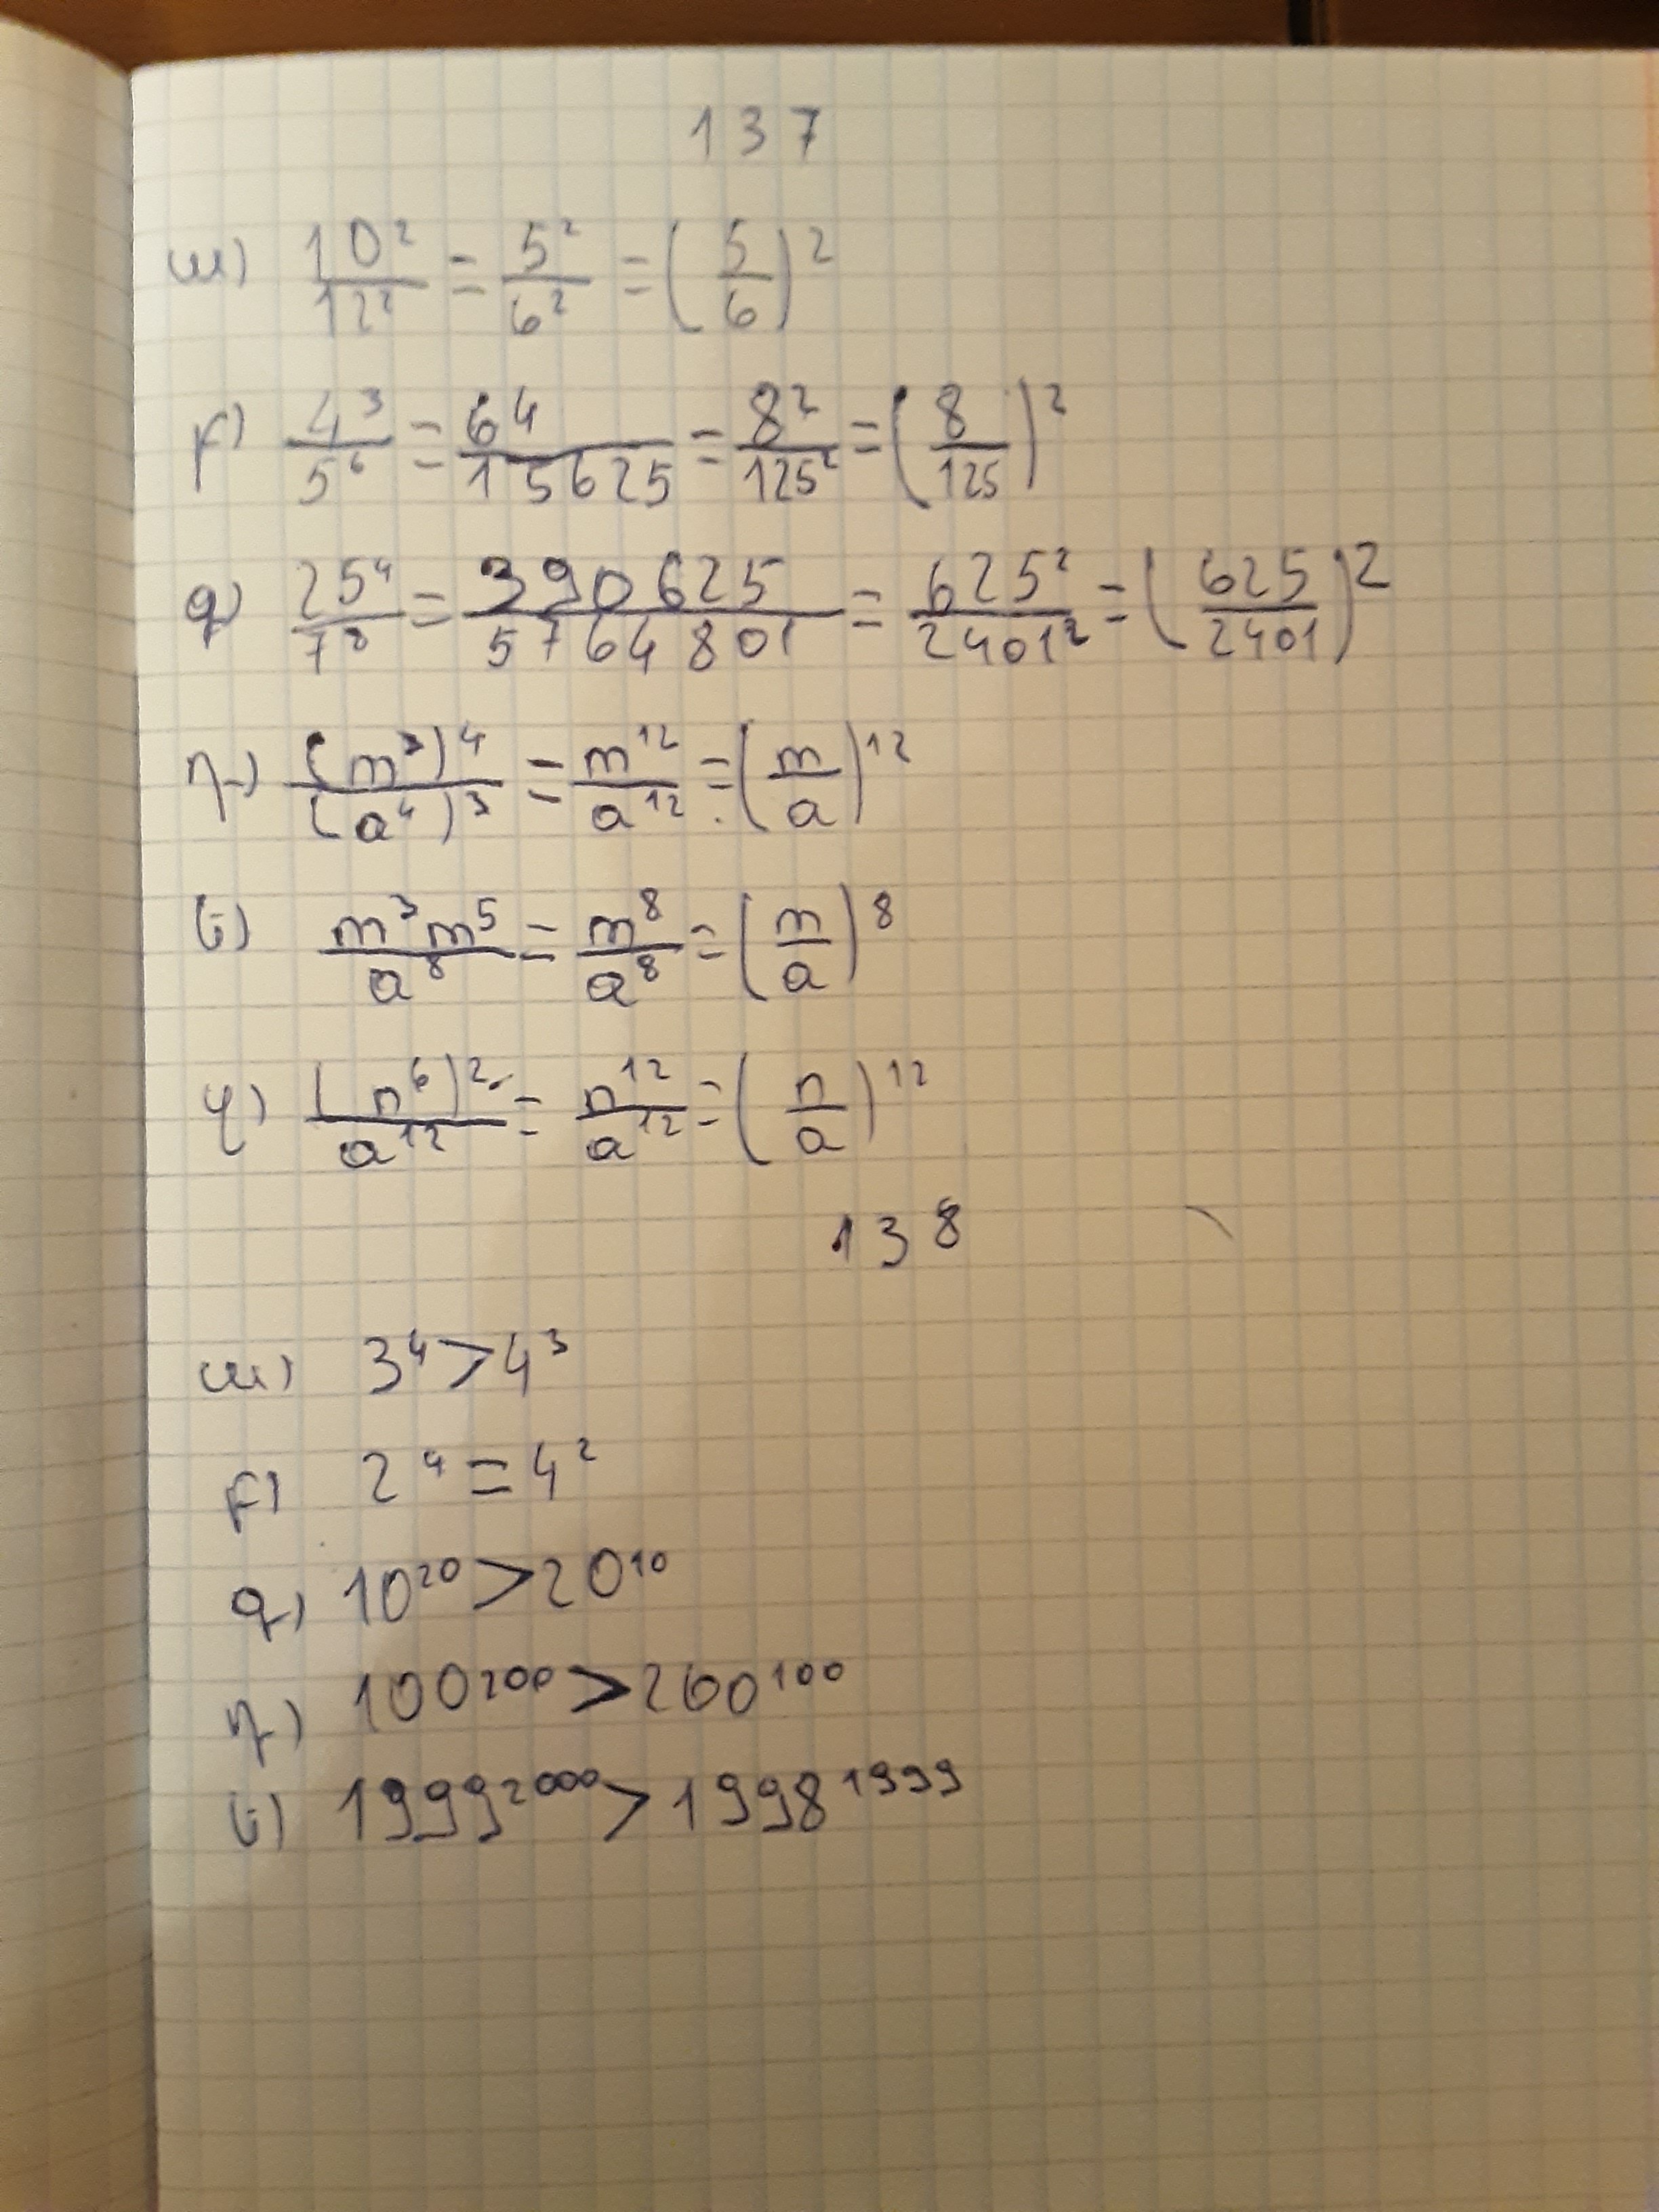 137
ա) 10²/12² = 5²/6² = (5/6)²
բ) 4³/5⁶ = 64/15625 = 8²/125² = (8/125)²
գ) 25⁴/7⁸ = 390625/5764801 = 625²/2401² = (625/2401)²
դ) (m³)⁴/(a⁴)³ = m¹²/a¹² = (m/a)¹²
ե) m³m⁵/a⁸ = m⁸/a⁸ = (m/a)⁸
զ) (n⁶)²/a¹² = n¹²/a¹² = (n/a)¹²
138
ա) 3⁴ > 4³
բ) 2⁴ = 4²
գ) 10²⁰ > 20¹⁰
դ) 100²⁰⁰ > 200¹⁰⁰
ե) 1999²⁰⁰⁰ > 1998¹⁹⁹⁹